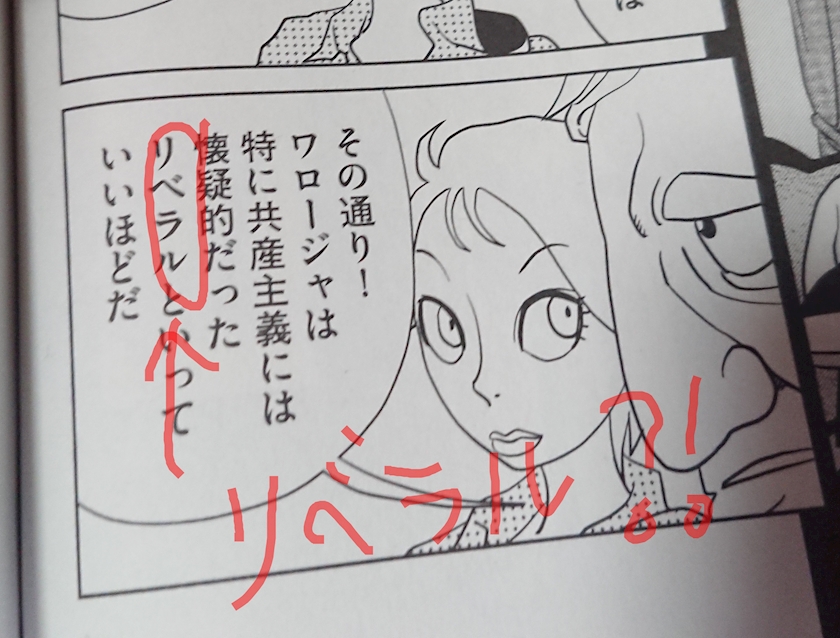 は
その通り！
ワロージャは
特に共産主義には
懐疑的だった
リベラルといって
いいほどだ
リベラル?!